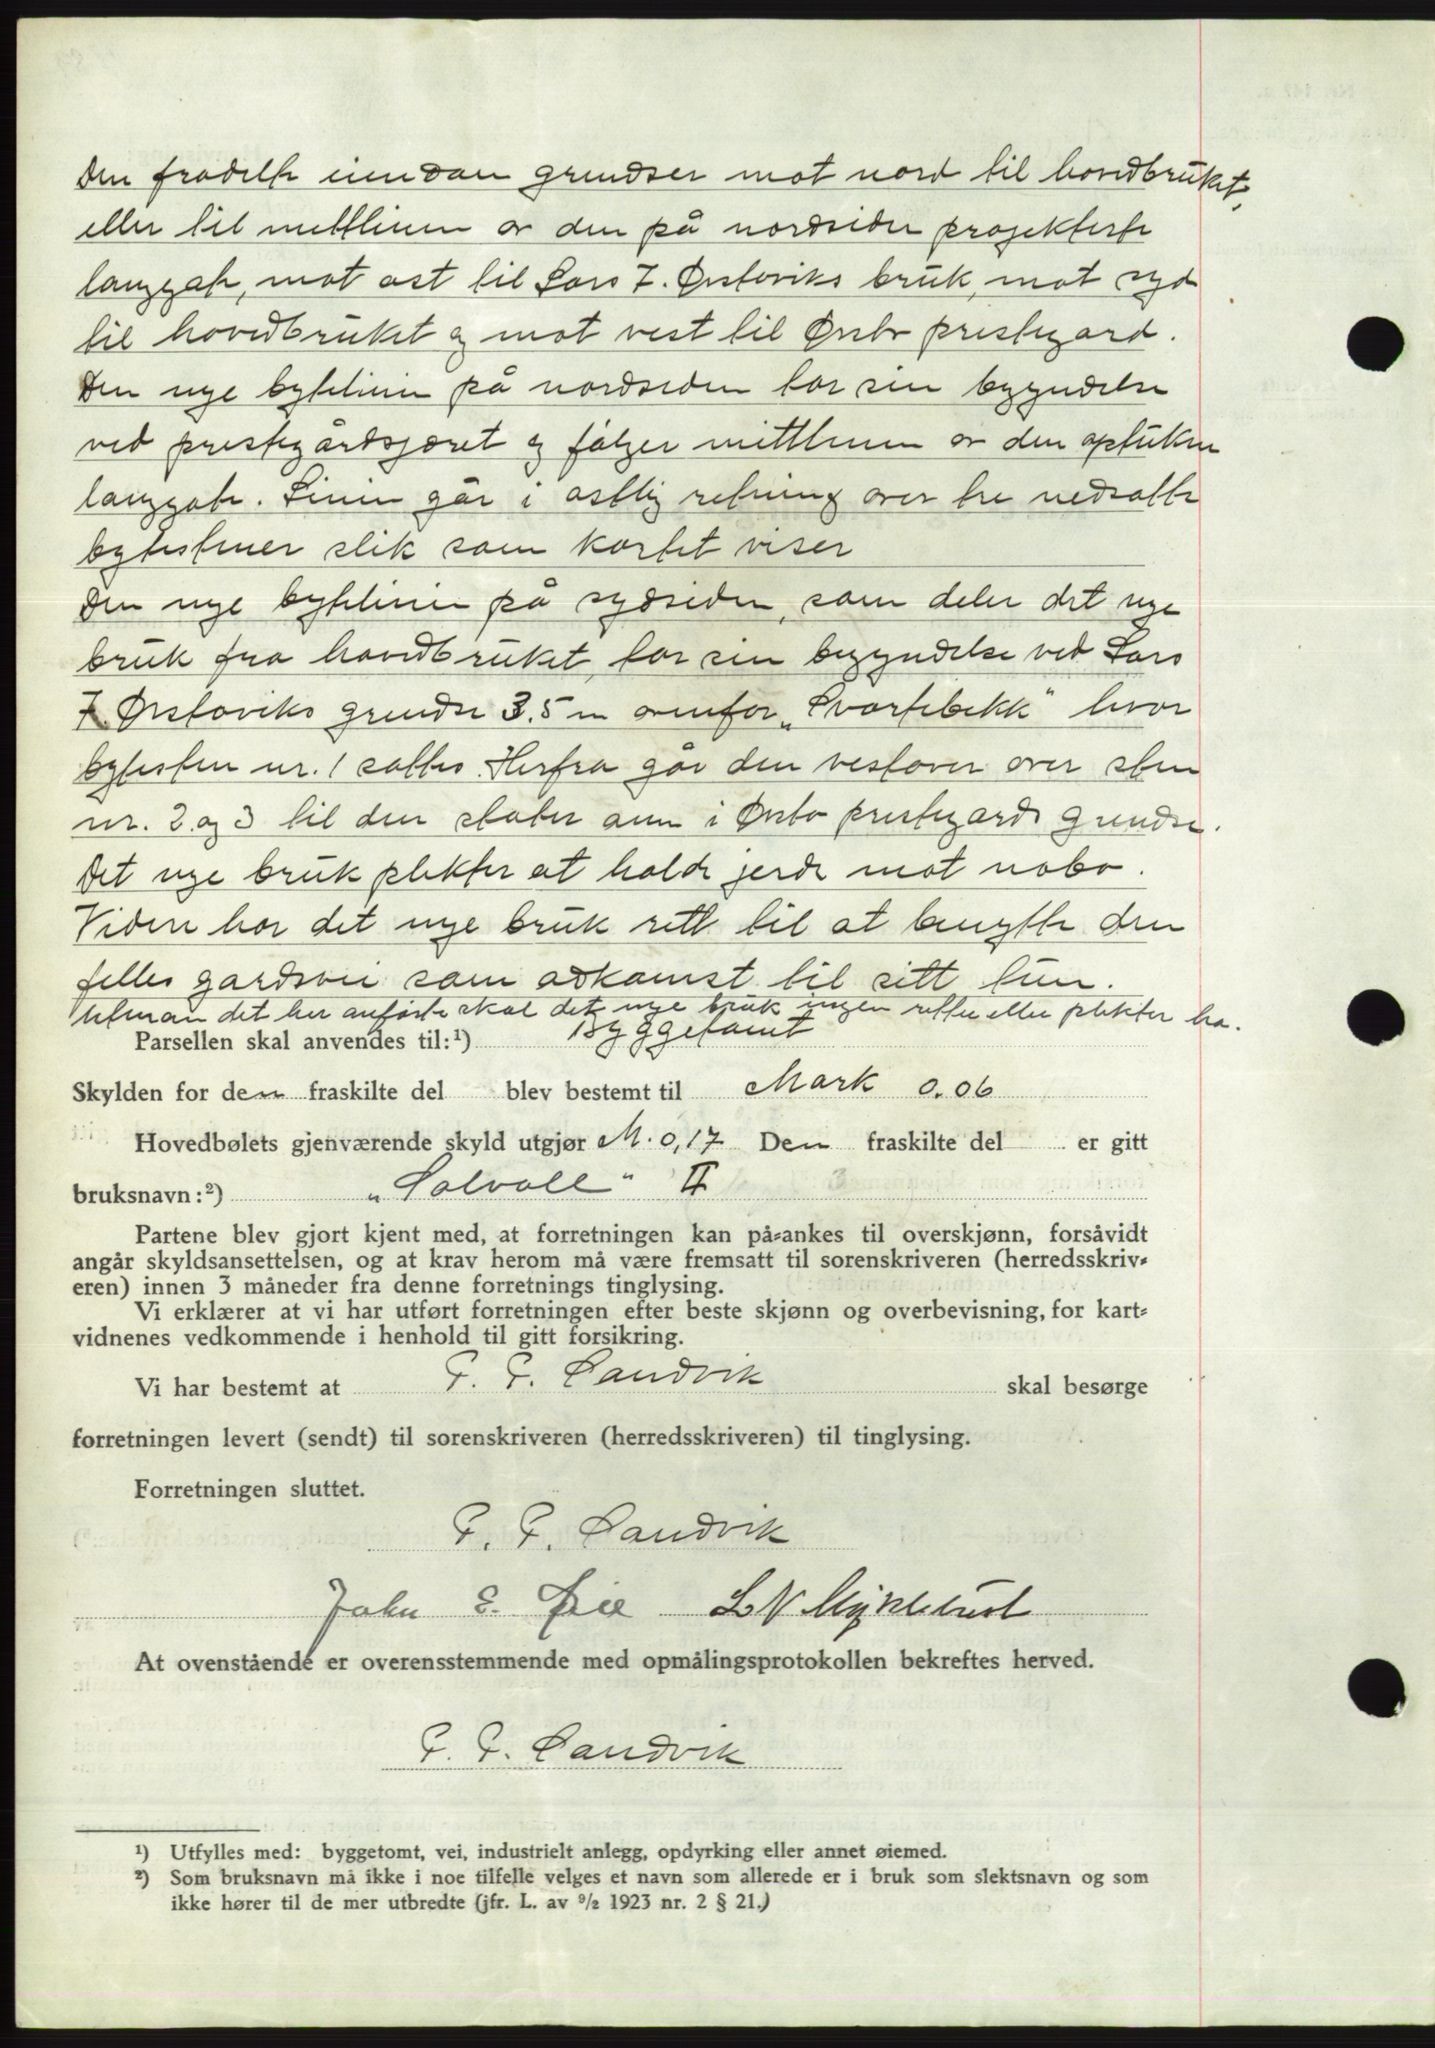 Den fradelte eiendom grendser mot nord til hovedbruket,
eller til mittlinien av den på nordsiden projekterte
langgate, mot ost til Lars T. Ørstaviks bruk, mot syd
til hovedbruket og mot vest til Ørsta prestegard.
Den nye bytelinie på nordsiden tar sin begyndelse
ved prestegårdsgjæret og følger mittlinien av den optukne
langgate. Linien går i østlig retning over tre nedsatte
bytestener slik som kartet viser
Den nye bytelinie på sydsiden, som deler det nye
bruk fra hovedbruket, tar sin begyndelse ved Lars
T. Ørstaviks grendse 3.5 m ovenfor „Svartebekk" hvor
bytesten nr. 1 sattes. Herfra går den vestover over sten
nr. 2 og 3 til den støter ann i Ørsta prestegards grendse.
Det nye bruk plikter at holde jerde mot nabo.
Videre har det nye bruk rett til at benytte den
felles gardsvei som adkomst til sitt tun.
Utenom det her anførte skal det nye bruk ingen retter eller plikter ha.
Parsellen skal anvendes til:¹) Byggetomt
Skylden for den fraskilte del blev bestemt til Mark 0.06
Hovedbølets gjenværende skyld utgjør M. 0,17 Den fraskilte del er gitt
bruksnavn:²) „Solvoll" II
Partene blev gjort kjent med, at forretningen kan på-ankes til overskjønn, forsåvidt
angår skyldsansettelsen, og at krav herom må være fremsatt til sorenskriveren (herredsskriv-
eren) innen 3 måneder fra denne forretnings tinglysing.
Vi erklærer at vi har utført forretningen efter beste skjønn og overbevisning, for kart-
vidnenes vedkommende i henhold til gitt forsikring.
Vi har bestemt at P. P. Sandvik skal besørge
forretningen levert (sendt) til sorenskriveren (herredsskriveren) til tinglysing.
Forretningen sluttet.
P. P. Sandvik
John E. Øie L N Myklebust
At ovenstående er overensstemmende med opmålingsprotokollen bekreftes herved.
P. P. Sandvik
¹) Utfylles med: byggetomt, vei, industrielt anlegg, opdyrking eller annet øiemed.
²) Som bruksnavn må ikke i noe tilfelle velges et navn som allerede er i bruk som slektsnavn og som
ikke hører til de mer utbredte (jfr. L. av ⁹/₂ 1923 nr. 2 § 21.)